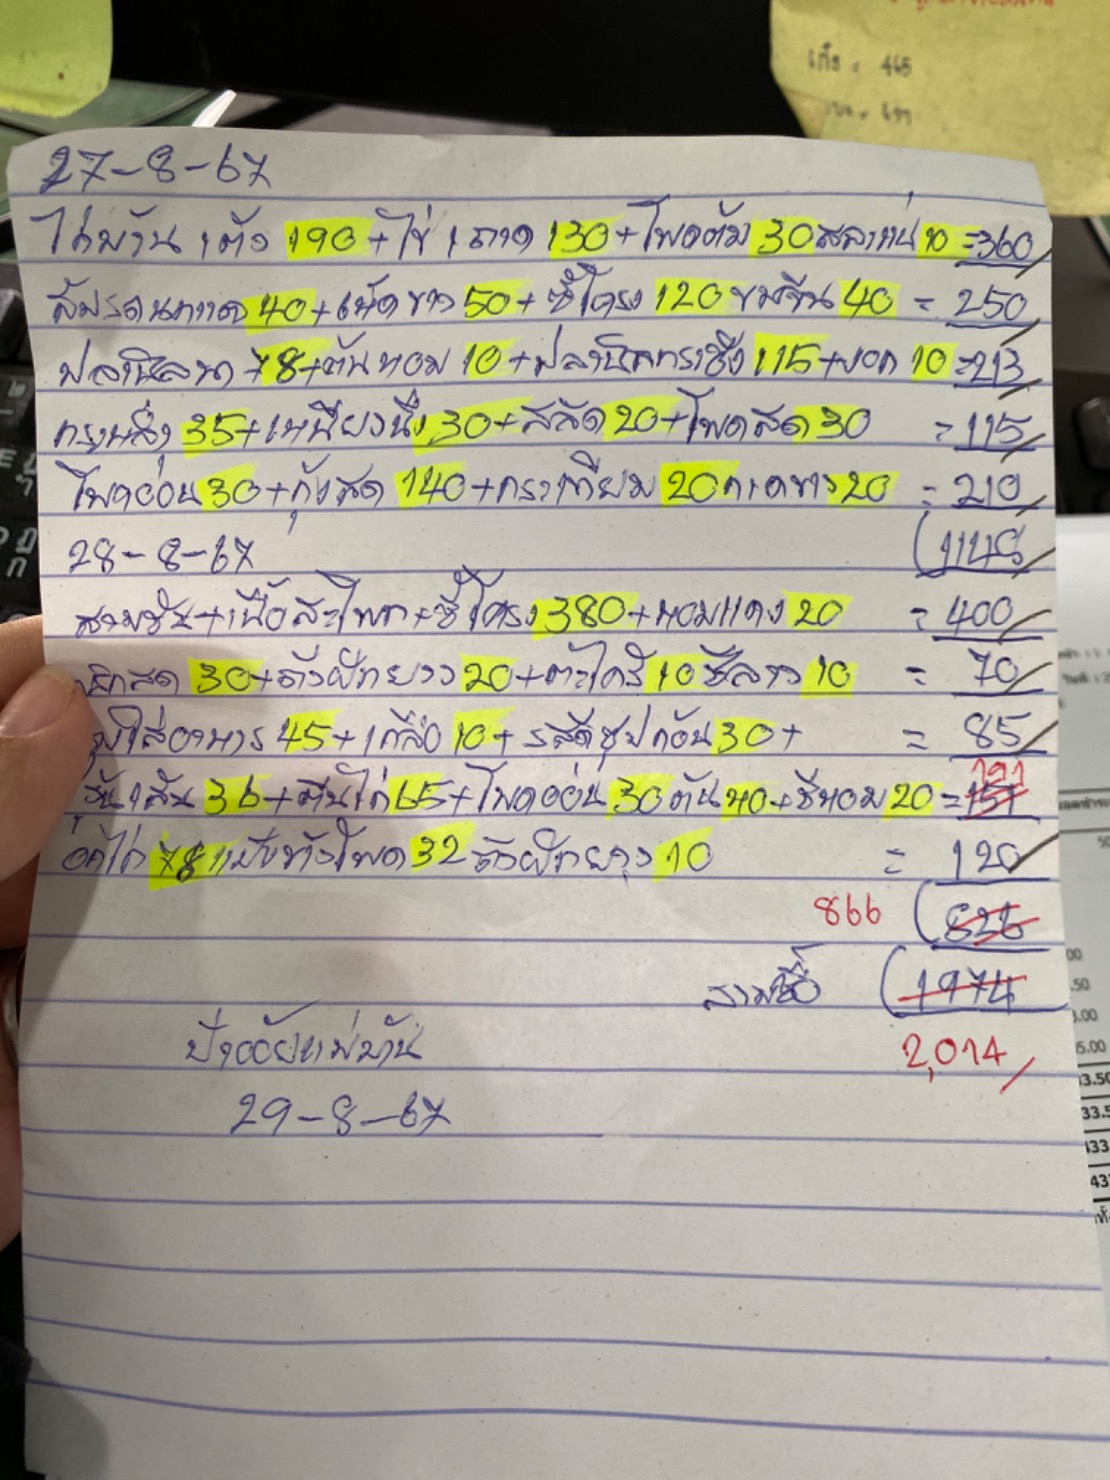 เก๊ะ = 465
= 697
27-8-67
ไก่บ้าน 1 ตัว 190 + ไข่ 1 ถาด 130 + โพดต้ม 30 10 = 360
40 + เห็ดขาว 50 + ซี่โครง 120 ขนมจีน 40 = 250
ปลานิล 78 + ต้นหอม 10 + ปลานิลกระชัง 115 + 10 = 213
35 + เหนียวนึ่ง 30 + สลัด 20 + โพดสด 30 = 115
โพดอ่อน 30 + กุ้งสด 140 + กระเทียม 20 กาดขาว 20 = 210
1148
28-8-67
สามชั้น + เนื้อสะโพก + ซี่โครง 380 + หอมแดง 20 = 400
สด 30 + ถั่วฝักยาว 20 + ตะไคร้ 10 ชีลาว 10 = 70
ถุงใส่อาหาร 45 + เกลือ 10 + รสดีซุปก้อน 30 + = 85
191
วุ้นเส้น 36 + ตีนไก่ 65 + โพดอ่อน 30 ต้น 40 + ชีหอม 20 = 151
อกไก่ 78 แป้งทังโพด 32 ถั่วฝักยาว 10 = 120
866 826
รวมซื้อ 1974
ป้าออยแม่บ้าน 2,014
29-8-67